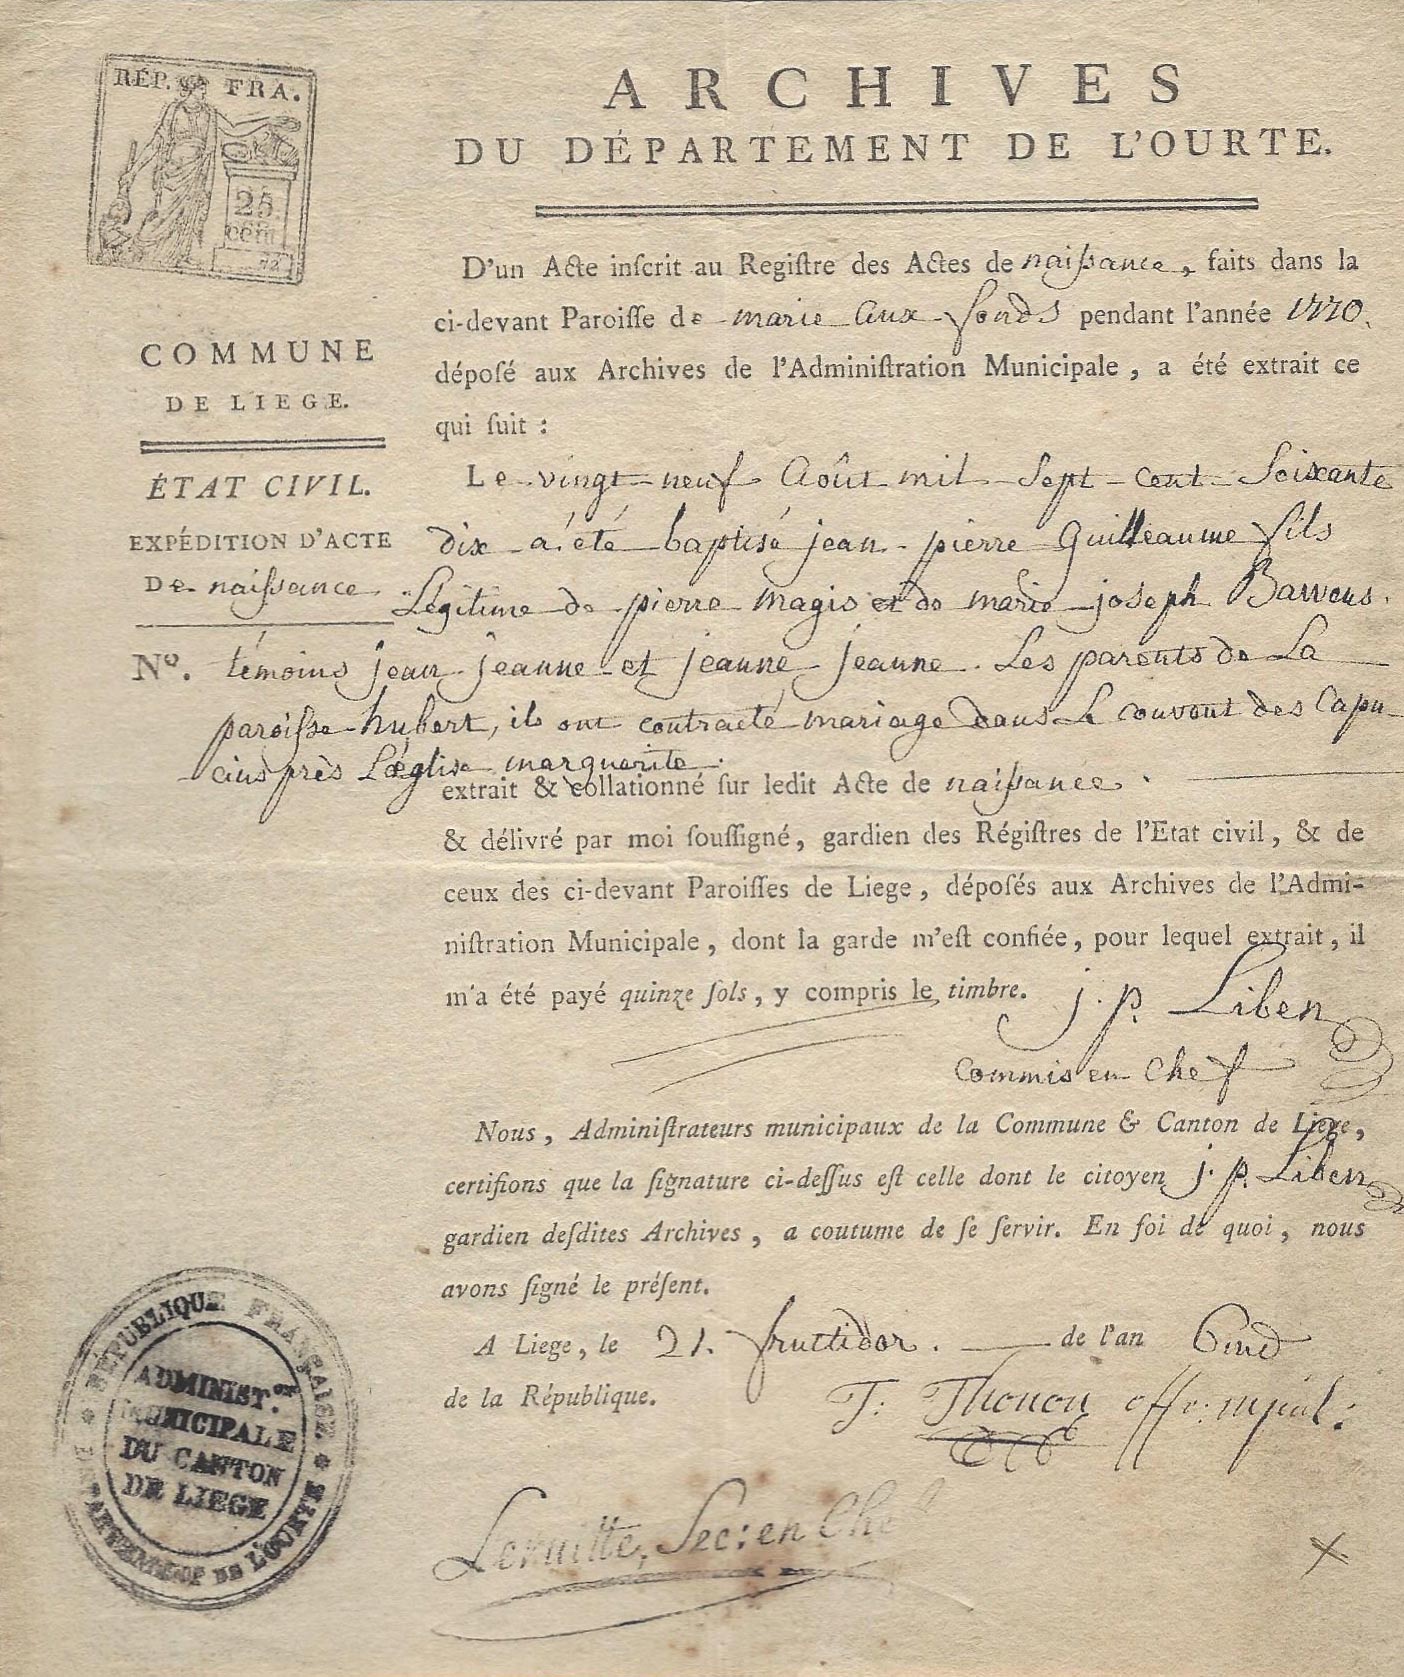 RÉP. FRA.
25.
cem.
72
ARCHIVES
DU DÉPARTEMENT DE L'OURTE.
COMMUNE
DE LIEGE.
ÉTAT CIVIL.
EXPÉDITION D'ACTE
De naissance
Nº.
D'un Acte inſcrit au Regiſtre des Actes de naissance, faits dans la
ci-devant Paroiſſe de marie aux fonds pendant l'année 1770.
dépoſé aux Archives de l'Adminiſtration Municipale, a été extrait ce
qui ſuit :
Le vingt neuf Août mil Sept cent Soixante
dix a été baptisé jean pierre Guilleaume fils
Légitime de pierre magis et de marie joseph
témoins jean jeanne et jeanne jeanne. Les parents de La
paroisse hubert, ils ont contracté mariage dans Le couvent des Capu
cins près L'église marguerite.
extrait & collationné ſur ledit Acte de naissance.
& délivré par moi ſouſſigné, gardien des Régiſtres de l'Etat civil, & de
ceux des ci-devant Paroiſſes de Liege, dépoſés aux Archives de l'Admi-
niſtration Municipale, dont la garde m'eſt confiée, pour lequel extrait, il
m'a été payé quinze ſols, y compris le timbre. j. p. Liben
Commis en Chef
Nous, Adminiſtrateurs municipaux de la Commune & Canton de Liege,
certifions que la ſignature ci-deſſus eſt celle dont le citoyen j. p. Liben
gardien deſdites Archives, a coutume de ſe ſervir. En foi de quoi, nous
avons ſigné le préſent.
A Liege, le 21. fructidor. de l'an
de la République. T: Thonon off: mpal:
Sec: en Chef
RÉPUBLIQUE FRANÇAISE
DÉPARTEMENT DE L'OURTE
ADMINIST.ON
MUNICIPALE
DU CANTON
DE LIEGE